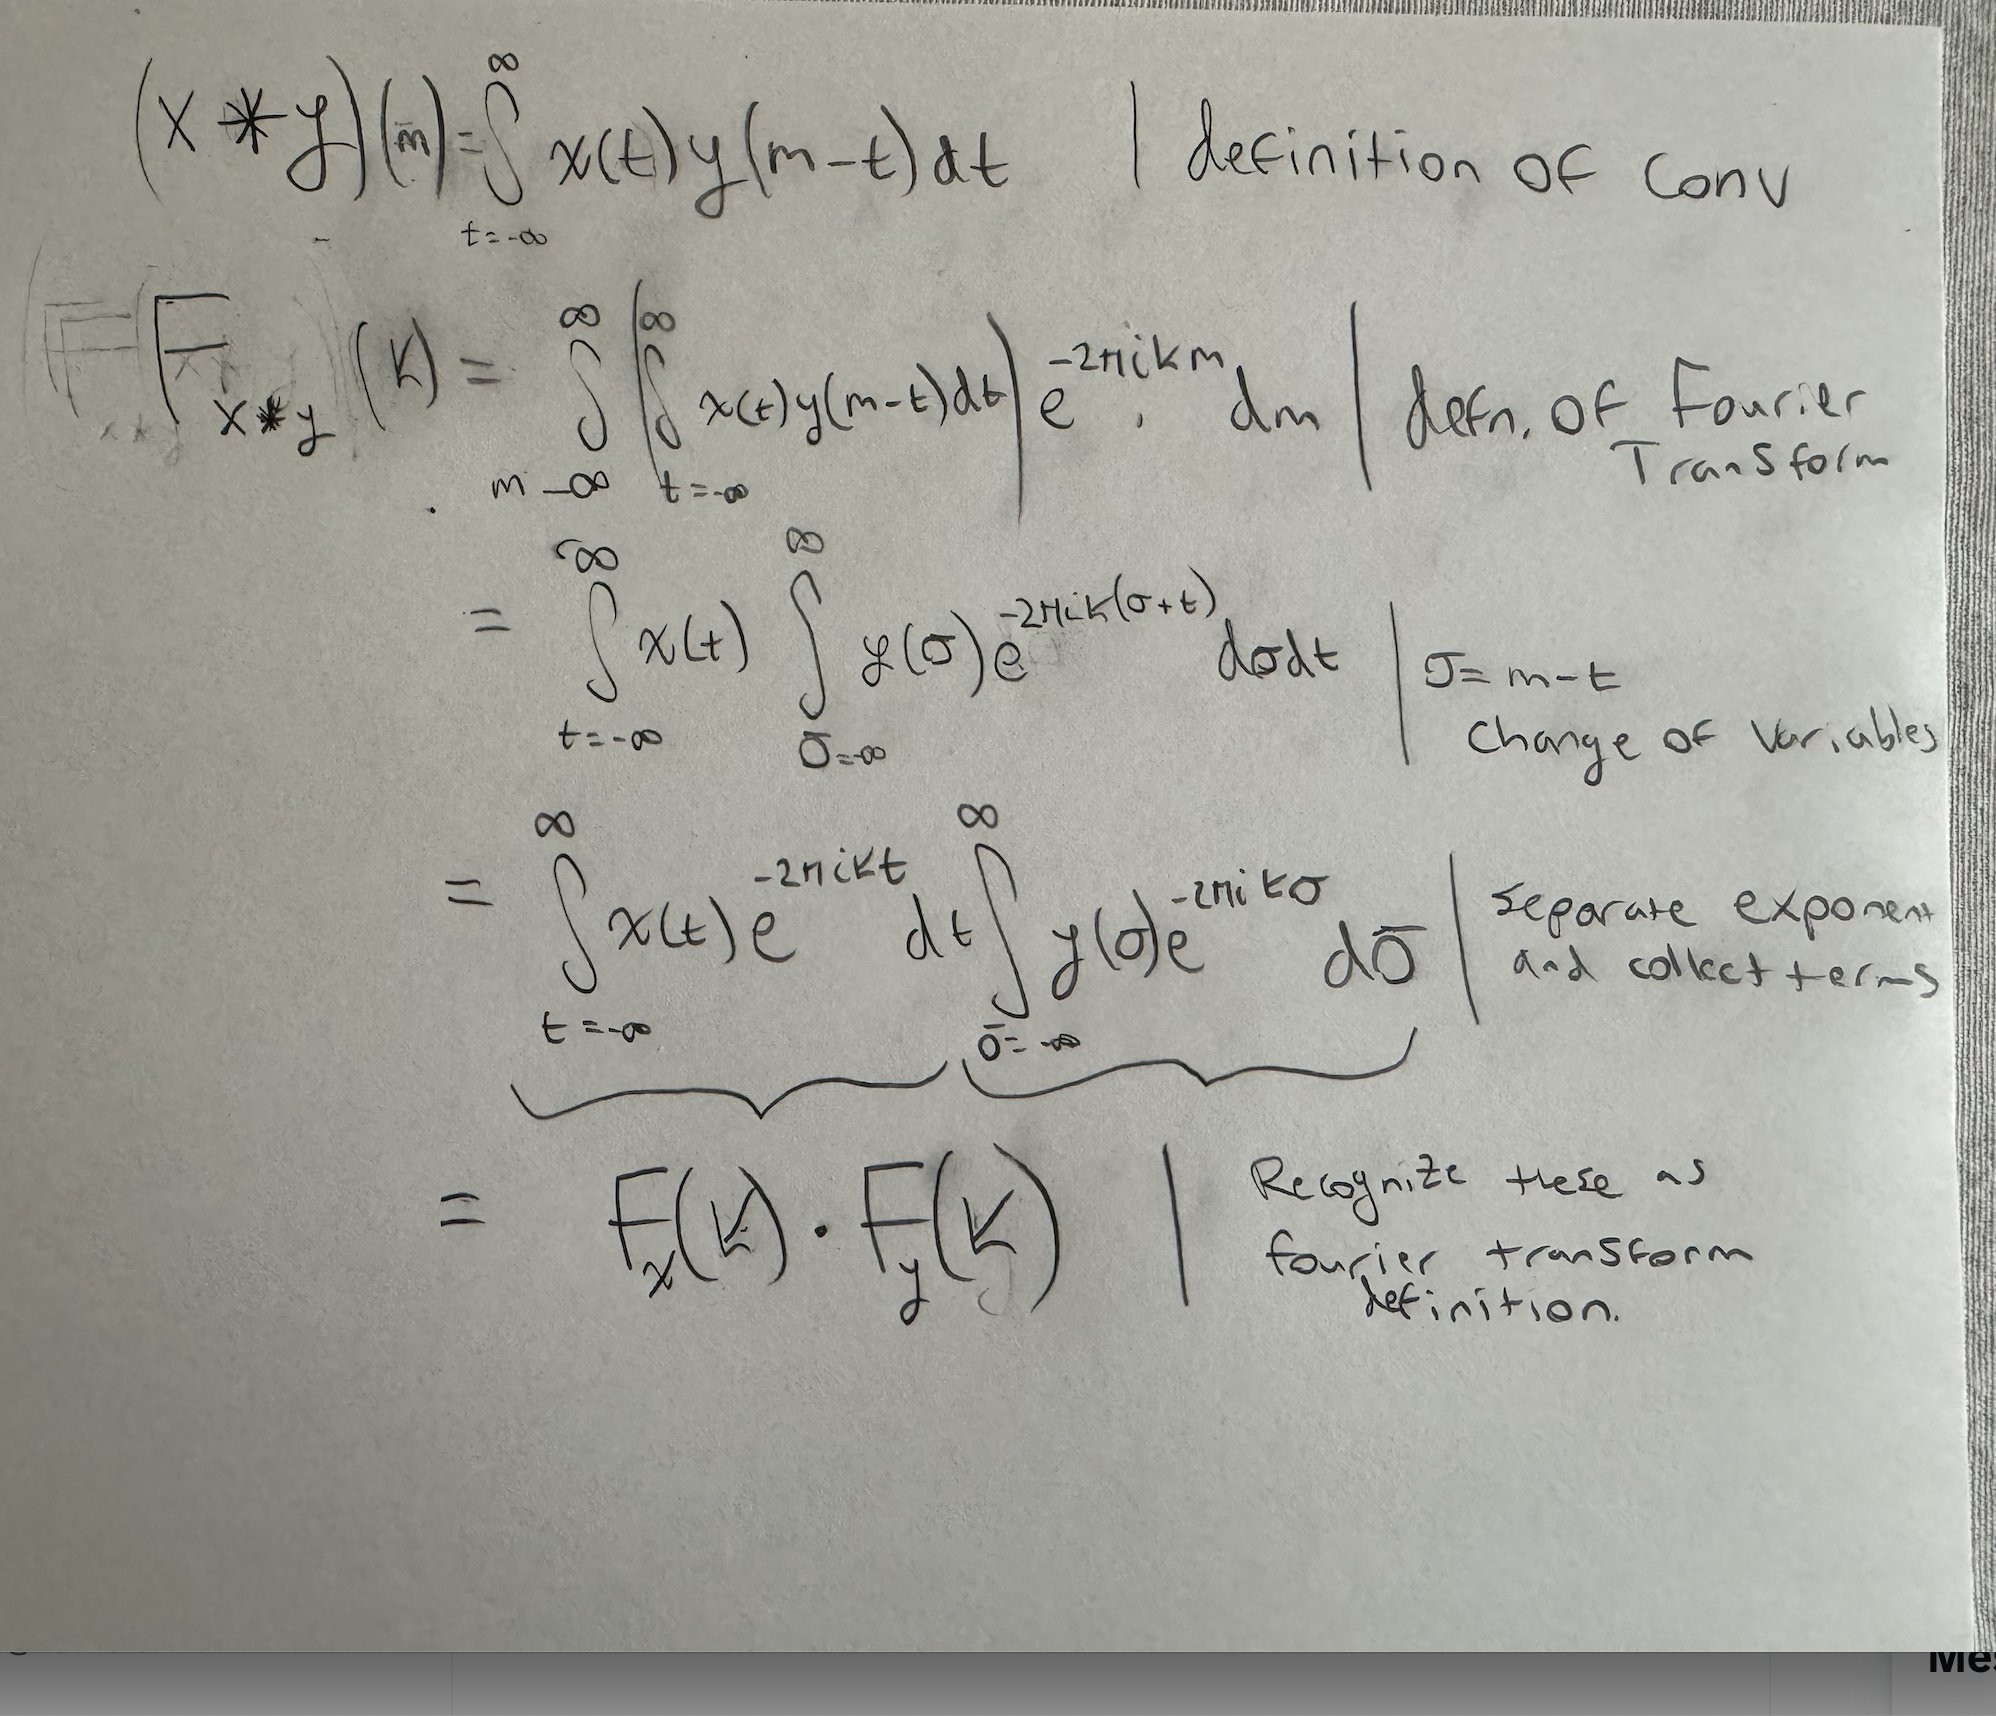 (x * y)(m) = ∫_{t=-∞}^{∞} x(t) y(m-t) dt | definition of conv
F_{x*y}(k) = ∫_{m -∞}^{∞} (∫_{t=-∞}^{∞} x(t) y(m-t) dt) e^{-2πikm} dm | defn. of Fourier
Transform
= ∫_{t=-∞}^{∞} x(t) ∫_{σ=-∞}^{∞} y(σ) e^{-2πik(σ+t)} dσdt | σ = m-t
change of variables
= ∫_{t=-∞}^{∞} x(t) e^{-2πikt} dt ∫_{σ=-∞}^{∞} y(σ) e^{-2πikσ} dσ | separate exponent
and collect terms
= F_x(k) · F_y(k) | Recognize these as
fourier transform
definition.